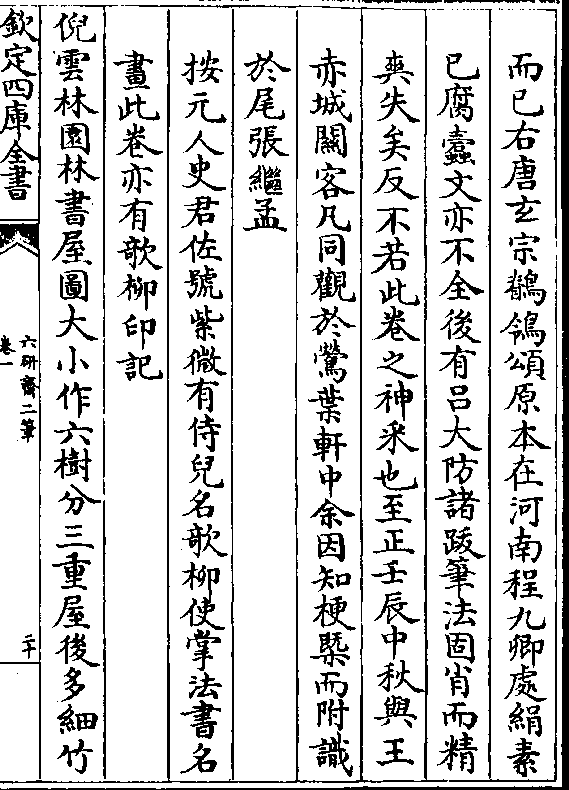 而已右唐玄宗鶺鴒頌原本在河南程九卿處絹素
已腐蠹文亦不全後有吕大防諸跋筆法固肖而精
爽失矣反不若此卷之神采也至正壬辰中秋與王
赤城關客凡同觀於鶯葉軒中余因知梗槩而附識
於尾張繼孟
按元人史君佐號紫微有侍兒名歌柳使掌法書名
畫此卷亦有歌柳印記
倪雲林園林書屋圖大小作六樹分三重屋後多細竹
欽定四庫全書
六研齋二筆
卷一
二十